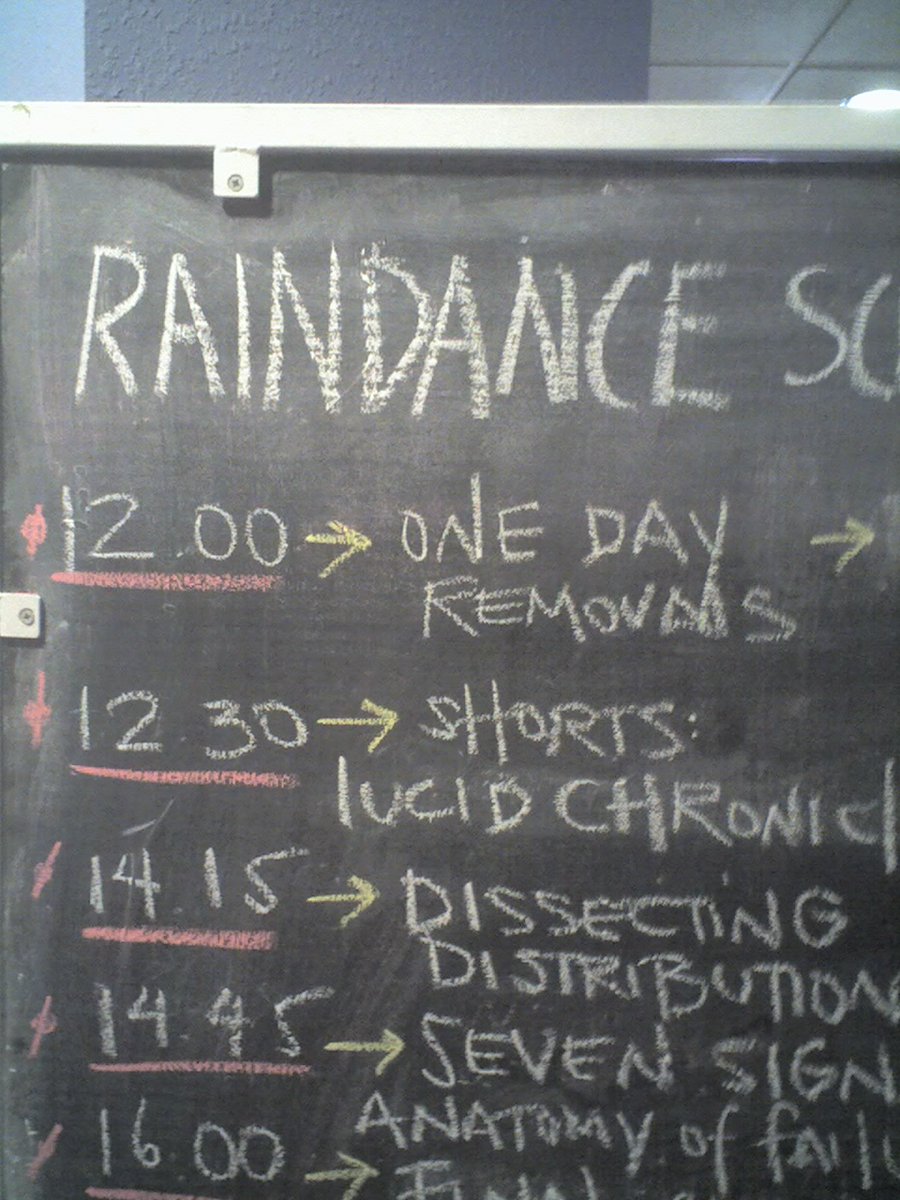 RAINDANCE SC
12.00 → ONE DAY →
REMOVALS
12 30 → SHORTS:
LUCID CHRONICL
14 15 → DISSECTING
DISTRIBUTION
14.45 → SEVEN SIGN
ANATOMY of fAILU
16.00 → FINAL